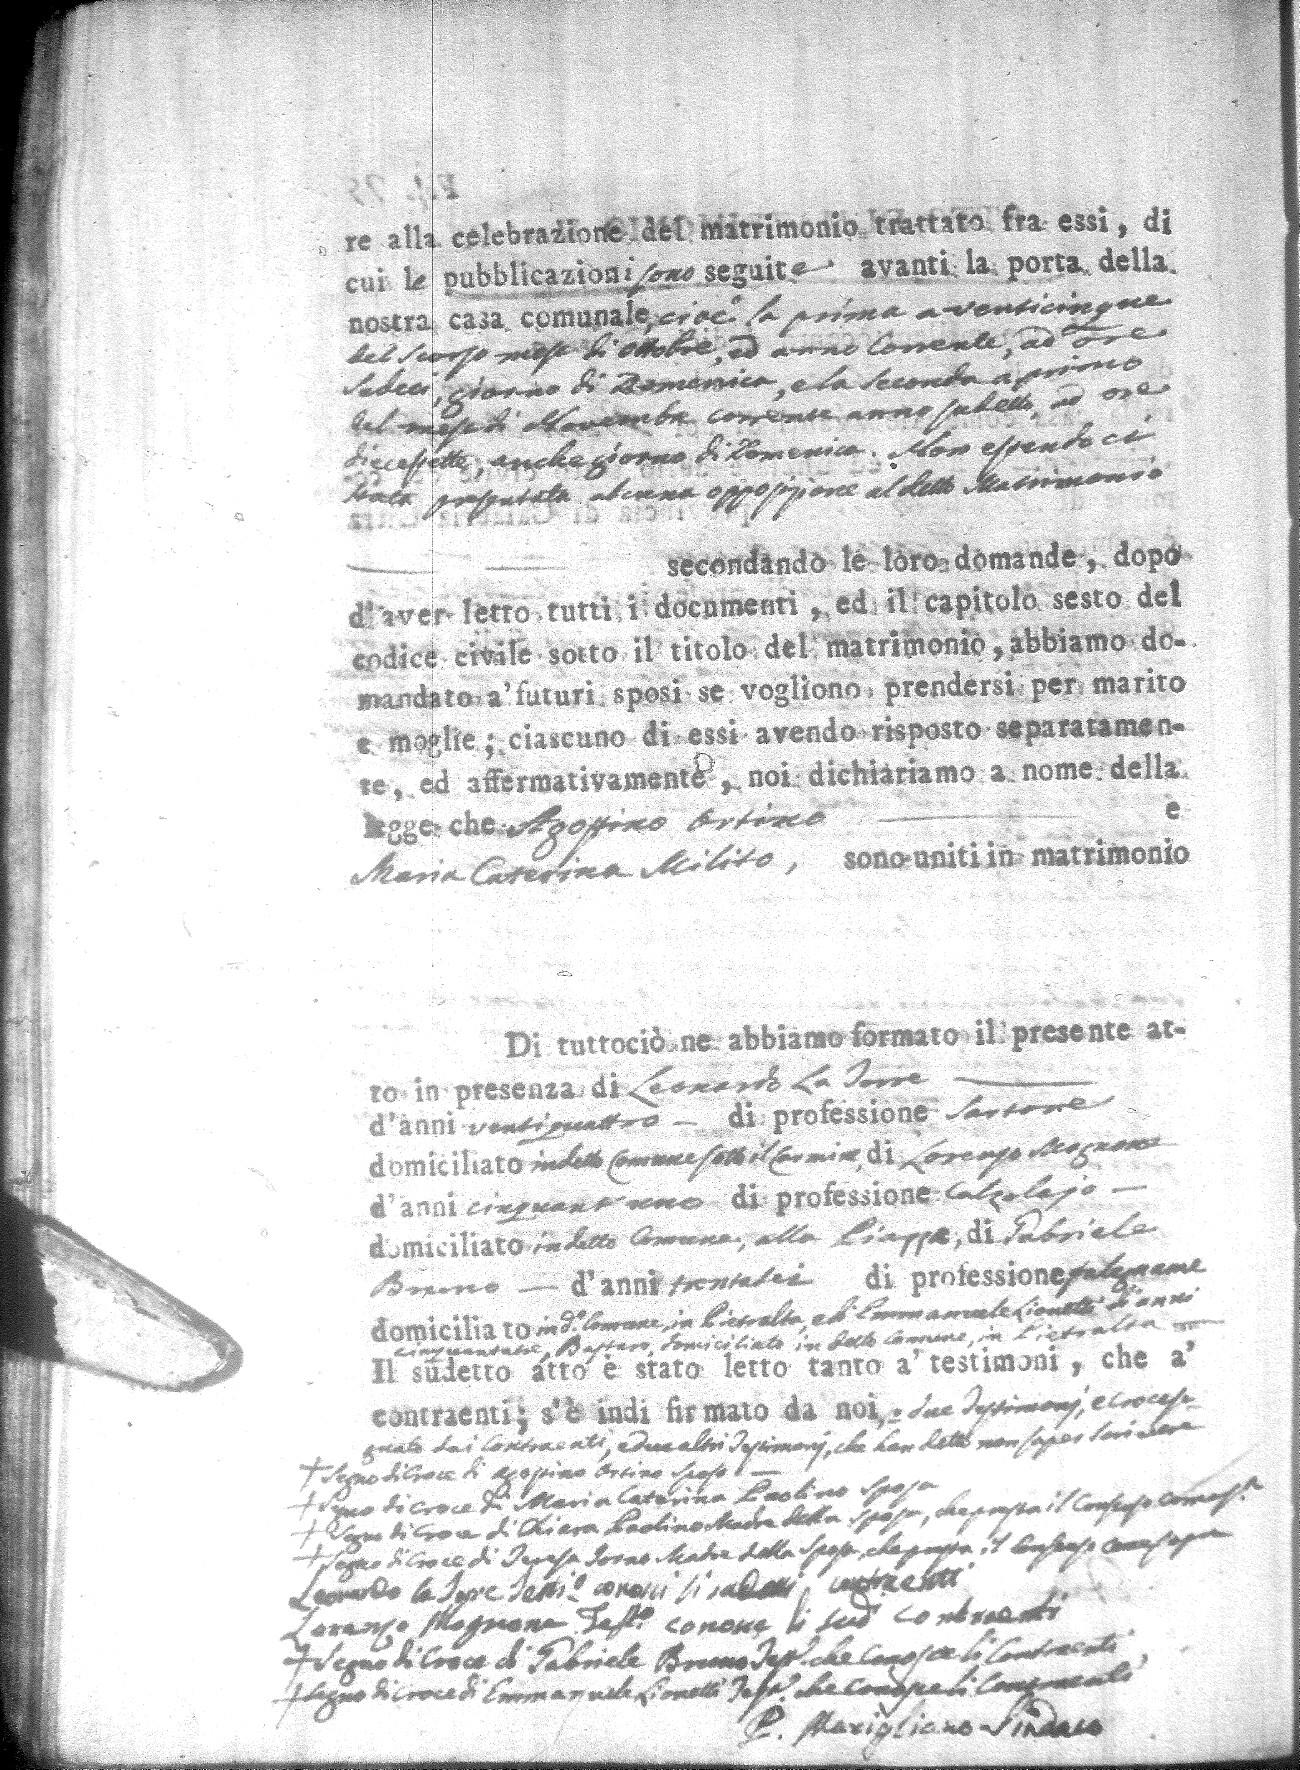 re alla celebrazione del matrimonio trattato fra essi, di
cui le pubblicazioni sono seguite avanti la porta della
nostra casa comunale, cioè la prima a venticinque
del scorso mese di Ottobre, ed anno Corrente, ad ore
giorno di Domenica, e la seconda a primo
del mese di Novembre corrente anno sudetto, ad ore
diecessette, anche giorno di Domenica. Non essendoci
stata presentata alcuna opposizione al detto Matrimonio
secondando le loro domande, dopo
d'aver letto tutti i documenti, ed il capitolo sesto del
codice civile sotto il titolo del matrimonio, abbiamo do-
mandato a' futuri sposi se vogliono prendersi per marito
e moglie; ciascuno di essi avendo risposto separatamen-
te, ed affermativamente, noi dichiariamo a nome della
legge che Agostino Ortino e
Maria Caterina Milito, sono uniti in matrimonio
Di tuttociò ne abbiamo formato il presente at-
to in presenza di Leonardo La Torre
d'anni ventiquattro di professione Sartore
domiciliato in detto Comune sotto il Carmine, di Lorenzo Mognone
d'anni cinquant'uno di professione Calzolajo
domiciliato in detto Comune, alla Piazza, di Gabriele
Bruno d'anni trentasei di professione falegname
domiciliato in d.° Comune, in Pietralta, e di Emmanuele Lionetti d'anni
Bastaro, domiciliato in detto Comune, in Pietralta
Il sudetto atto è stato letto tanto a' testimoni, che a'
contraenti; s'è indi firmato da noi, e due Testimonj, e crocese-
gnato dai Contraenti, e due altri Testimonj, che han detto non saper scrivere
+ Segno di Croce di Agostino Ortino sposo
+ Segno di Croce di Maria Caterina Paolino sposa
+ Segno di Croce di Chiara Paolino Madre della Sposa, che presta il Consenso come
+ Segno di Croce di Teresa Torno Madre dello Sposo, che presta il Consenso come sopra
Leonardo la Torre Testi.° conosci li sudetti contraenti
Lorenzo Mognone Test.° conosce li sud.i contraenti
+ Segno di Croce di Gabriele Bruno Test.° che conosce li Contraenti
+ Segno di Croce di Emmanuele Lionetti Test.° che conosce li Contraenti
P. Marigliano Sindaco